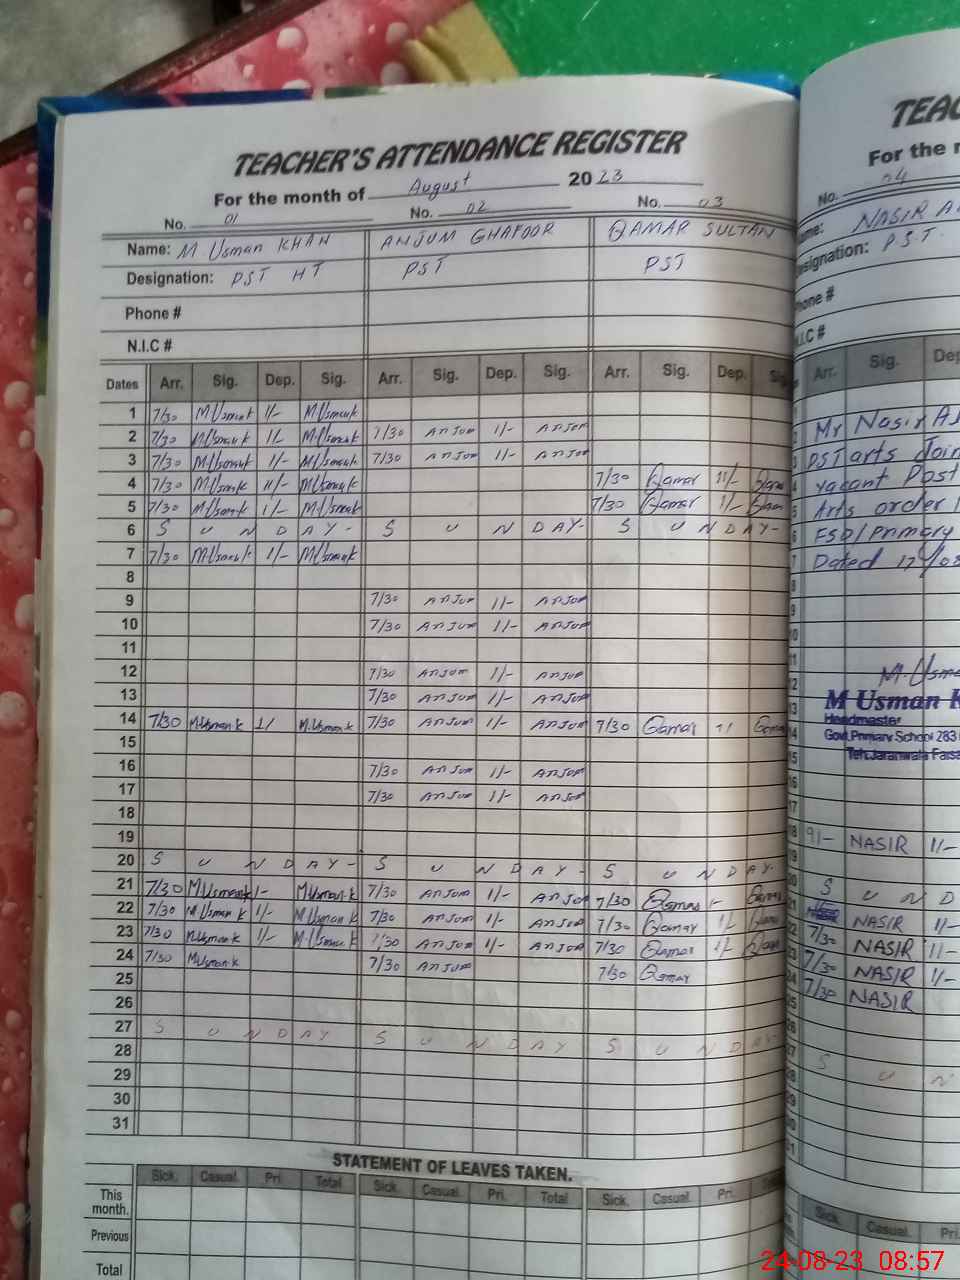 TEACHER'S ATTENDANCE REGISTER
For the month of August 2023
No. 01 No. 02 No. 03
Name: M Usman KHAN ANJUM GHAFOOR QAMAR SULTAN
Designation: PST HT PST PST
Phone #
N.I.C #
Dates Arr. Sig. Dep. Sig. Arr. Sig. Dep. Sig. Arr. Sig. Dep. Sig.
1 7/30 M.Usman.k 1/- M.Usman.k
2 7/30 M.Usman.k 1/- M.Usman.k 7/30 ANJUM 1/- ANJUM
3 7/30 M.Usman.k 1/- M.Usman.k 7/30 ANJUM 1/- ANJUM
4 7/30 M.Usman.k 11/- M.Usman.k 7/30 Qamar 11/- Qamar
5 7/30 M.Usman.k 1/- M.Usman.k 7/30 Qamar 1/- Qamar
6 S U N D A Y - S U N D A Y - S U N D A Y -
7 7/30 M.Usman.k 1/- M.Usman.k
8
9 7/30 ANJUM 1/- ANJUM
10 7/30 ANJUM 1/- ANJUM
11
12 7/30 ANJUM 1/- ANJUM
13 7/30 ANJUM 1/- ANJUM
14 7/30 M.Usman.k 1/ M.Usman.k 7/30 ANJUM 1/- ANJUM 7/30 Qamar 1/ Qamar
15
16 7/30 ANJUM 1/- ANJUM
17 7/30 ANJUM 1/- ANJUM
18
19
20 S U N D A Y - S U N D A Y - S U N D A Y -
21 7/30 M.Usman.k 1- M.Usman.k 7/30 ANJUM 1/- ANJUM 7/30 Qamar 1- Qamar
22 7/30 M.Usman k 1/- M.Usman k 7/30 ANJUM 1/- ANJUM 7/30 Qamar 1/- Qamar
23 7/30 M.Usman k 1/- M.Usman k 7/30 ANJUM 1/- ANJUM 7/30 Qamar 1/- Qamar
24 7/30 M.Usman.k 7/30 ANJUM 7/30 Qamar
25
26
27 S U N D A Y S U N D A Y - S U N D A Y
28
29
30
31
STATEMENT OF LEAVES TAKEN.
Sick. Casual. Pri. Total Sick. Casual. Pri. Total Sick. Casual. Pri.
This month.
Previous
Total
For the
No. 04
NASIR
Designation: P.S.T.
Phone #
N.I.C #
Arr. Sig.
Mr Nasir
PST arts Join
vacant Post
Arts order
FSD/Primary
Dated 17/08
M.Usman
M Usman K
Headmaster
Govt.Primary School 283
Teh.Jaranwala Faisa
18 91- NASIR 11-
S U N D
NASIR 11-
7/30 NASIR 11-
7/30 NASIR 1-
7/30 NASIR
S U N
Sick. Casual. Pri.
24-08-23 08:57